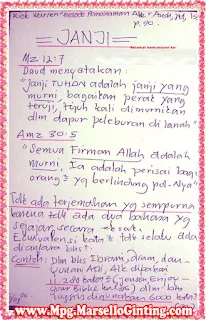 Rick Warren "Metode Pemahaman Alk."
p. 90.
= JANJI =
Mz 12:7
Daud menyatakan:
"Janji TUHAN adalah janji yang
murni, bagaikan perak yang
teruji, tujuh kali dimurnikan
dlm dapur peleburan di tanah"
Amz 30:5
"Semua Firman Allah adalah
murni. Ia adalah perisai bagi
orang2 yg berlindung pd-Nya"
Tdk ada terjemahan yg sempurna
karena tdk ada dua bahasa yg
sejajar secara
Equivalensi kata2 tdk selalu ada
diantara bhs2.
Contoh: Dlm bhs Ibrani, Aram, dan
Yunani Asli, Alk. dipakai
11.280
dlm bhs
Inggris digunakan 6000 kata2
www.Mpg.MarselloGinting.Com